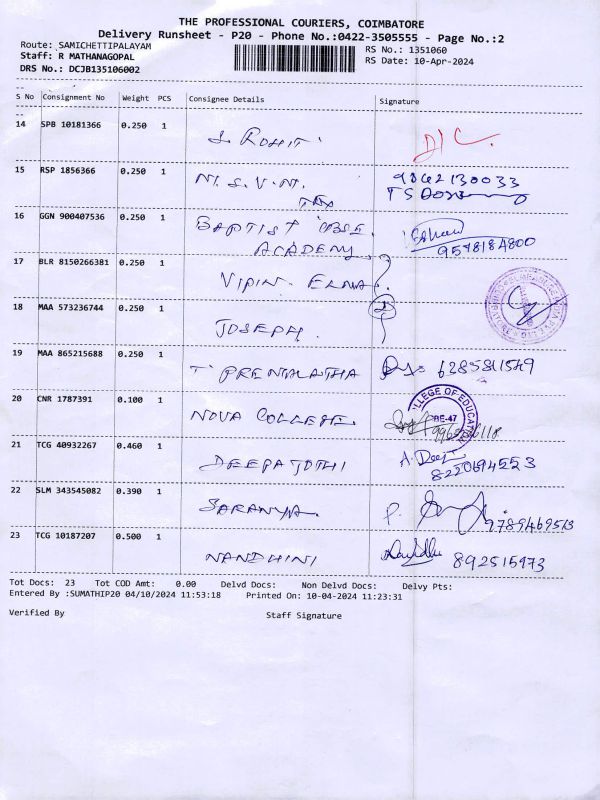 THE PROFESSIONAL COURIERS, COIMBATORE
Delivery Runsheet - P20 - Phone No.:0422-3505555 - Page No.:2
Route: SAMICHETTIPALAYAM RS No.: 1351060
Staff: R MATHANAGOPAL RS Date: 10-Apr-2024
DRS No.: DCJB135106002
S No Consignment No Weight PCS Consignee Details Signature
14 SPB 10181366 0.250 1 S. ROHIT. D/C.
15 RSP 1856366 0.250 1 M. S. V. M. 9842130033
TEX TS
16 GGN 900407536 0.250 1 BAPTIST CBSE.
ACADEMY 9578184800
17 BLR 8150266381 0.250 1 VIPIN.
18 MAA 573236744 0.250 1 JOSEPH.
19 MAA 865215688 0.250 1 T PREMALATHA 6285811549
20 CNR 1787391 0.100 1 NOVA COLLEGE.
COLLEGE OF EDUCATION
BE-47
21 TCG 40932267 0.460 1 DEEPA JOTHI A. Deepa
8220694553
22 SLM 343545082 0.390 1 SARANYA. P.
9789469513
23 TCG 10187207 0.500 1 NANDHINI 892515973
Tot Docs: 23 Tot COD Amt: 0.00 Delvd Docs: Non Delvd Docs: Delvy Pts:
Entered By :SUMATHIP20 04/10/2024 11:53:18 Printed On: 10-04-2024 11:23:31
Verified By Staff Signature